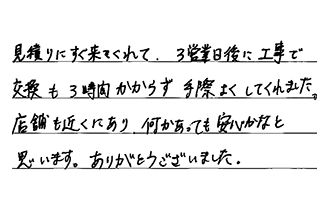 見積りにすぐ来てくれて、3営業日後に工事で
交換も3時間かからず手際よくしてくれました。
店舗も近くにあり、何かあっても安心かなと
思います。ありがとうございました。